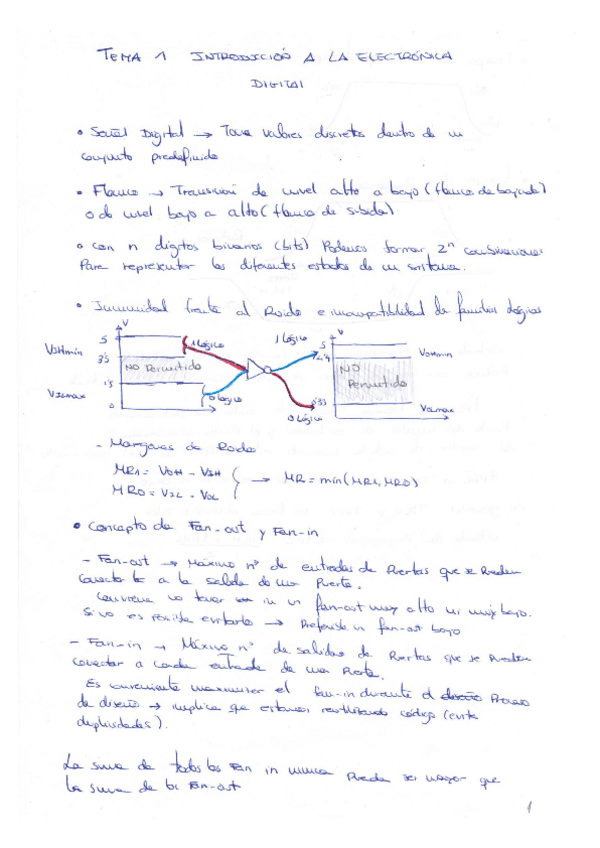 TEMA 1 INTRODUCCIÓN A LA ELECTRÓNICA
DIGITAL
• Señal Digital → Toma valores discretos dentro de un
conjunto predefinido
• Flanco → Transición de nivel alto a bajo (flanco de bajada)
o de nivel bajo a alto (flanco de subida)
• Con n dígitos binarios (bits) Podemos formar 2ⁿ combinaciones
Para representar los diferentes estados de un sistema.
• Inmunidad frente al Ruido e incompatibilidad de familias lógicas
V
5
VIHmin
3'5
NO Permitido
1'5
VILmax
0
1 Lógico
0 Lógico
1 Lógico
0 Lógico
V
5
VOHmin
NO
Permitido
0'33
VOLmax
- Margenes de Ruido
MR1 = VOH - VIH
MR0 = VIL - VOL
→ MR = min(MR1, MR0)
• Concepto de Fan-out y Fan-in
- Fan-out → Máximo nº de entradas de Puertas que se Pueden
conectar a la salida de una Puerta.
Conviene no tener un fan-out muy alto ni muy bajo.
Si no es posible evitarlo → Preferible un fan-out bajo
- Fan-in → Máximo nº de salidas de Puertas que se Pueden
conectar a cada entrada de una Puerta.
Es conveniente maximizar el fan-in durante el diseño Proceso
de diseño → implica que estamos reutilizando código (evita
duplicidades).
La suma de todos los Fan in nunca puede ser mayor que
la suma de los Fan-out
1